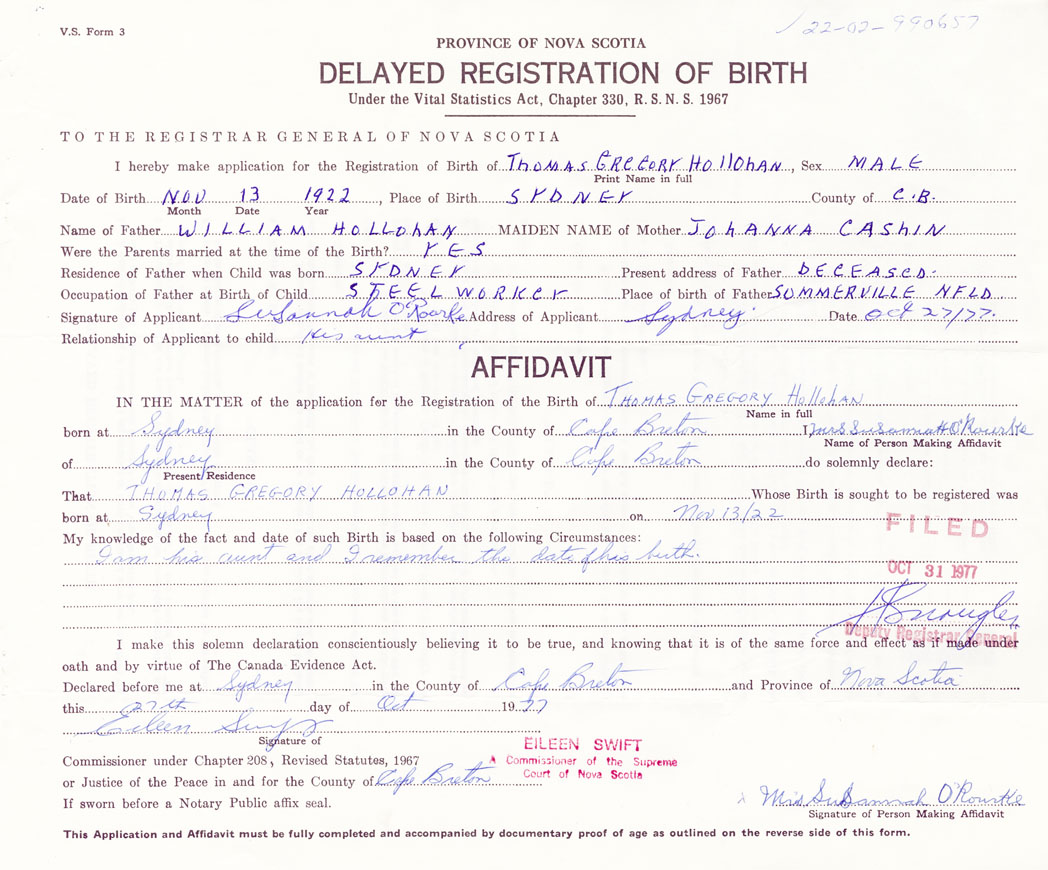 V.S. Form 3
22-02-990657
PROVINCE OF NOVA SCOTIA
DELAYED REGISTRATION OF BIRTH
Under the Vital Statistics Act, Chapter 330, R. S. N. S. 1967
TO THE REGISTRAR GENERAL OF NOVA SCOTIA
I hereby make application for the Registration of Birth of THOMAS GREGORY HOLLOHAN, Sex MALE
Print Name in full
Date of Birth NOV 13 1922, Place of Birth SYDNEY County of C.B.
Month Date Year
Name of Father WILLIAM HOLLOHAN MAIDEN NAME of Mother JOHANNA CASHIN
Were the Parents married at the time of the Birth? YES
Residence of Father when Child was born SYDNEY Present address of Father DECEASED.
Occupation of Father at Birth of Child STEEL WORKER Place of birth of Father SUMMERVILLE NFLD
Signature of Applicant Susannah O'Rourke Address of Applicant Sydney. Date Oct 27/77.
Relationship of Applicant to child His aunt
AFFIDAVIT
IN THE MATTER of the application for the Registration of the Birth of THOMAS GREGORY Hollohan
Name in full
born at Sydney in the County of Cape Breton I, Mrs Susannah O'Rourke
Name of Person Making Affidavit
of Sydney in the County of Cape Breton do solemnly declare:
Present Residence
That THOMAS GREGORY HOLLOHAN Whose Birth is sought to be registered was
born at Sydney on Nov 13/22
FILED
My knowledge of the fact and date of such Birth is based on the following Circumstances:
I am his aunt and I remember the date of his birth.
OCT 31 1977
Deputy Registrar General
I make this solemn declaration conscientiously believing it to be true, and knowing that it is of the same force and effect as if made under
oath and by virtue of The Canada Evidence Act.
Declared before me at Sydney in the County of Cape Breton and Province of Nova Scotia
this 27th day of Oct 1977
Eileen Swift
Signature of
EILEEN SWIFT
Commissioner under Chapter 208, Revised Statutes, 1967
A Commissioner of the Supreme
Court of Nova Scotia
or Justice of the Peace in and for the County of Cape Breton
If sworn before a Notary Public affix seal.
x Mrs Susannah O'Rourke
Signature of Person Making Affidavit
This Application and Affidavit must be fully completed and accompanied by documentary proof of age as outlined on the reverse side of this form.